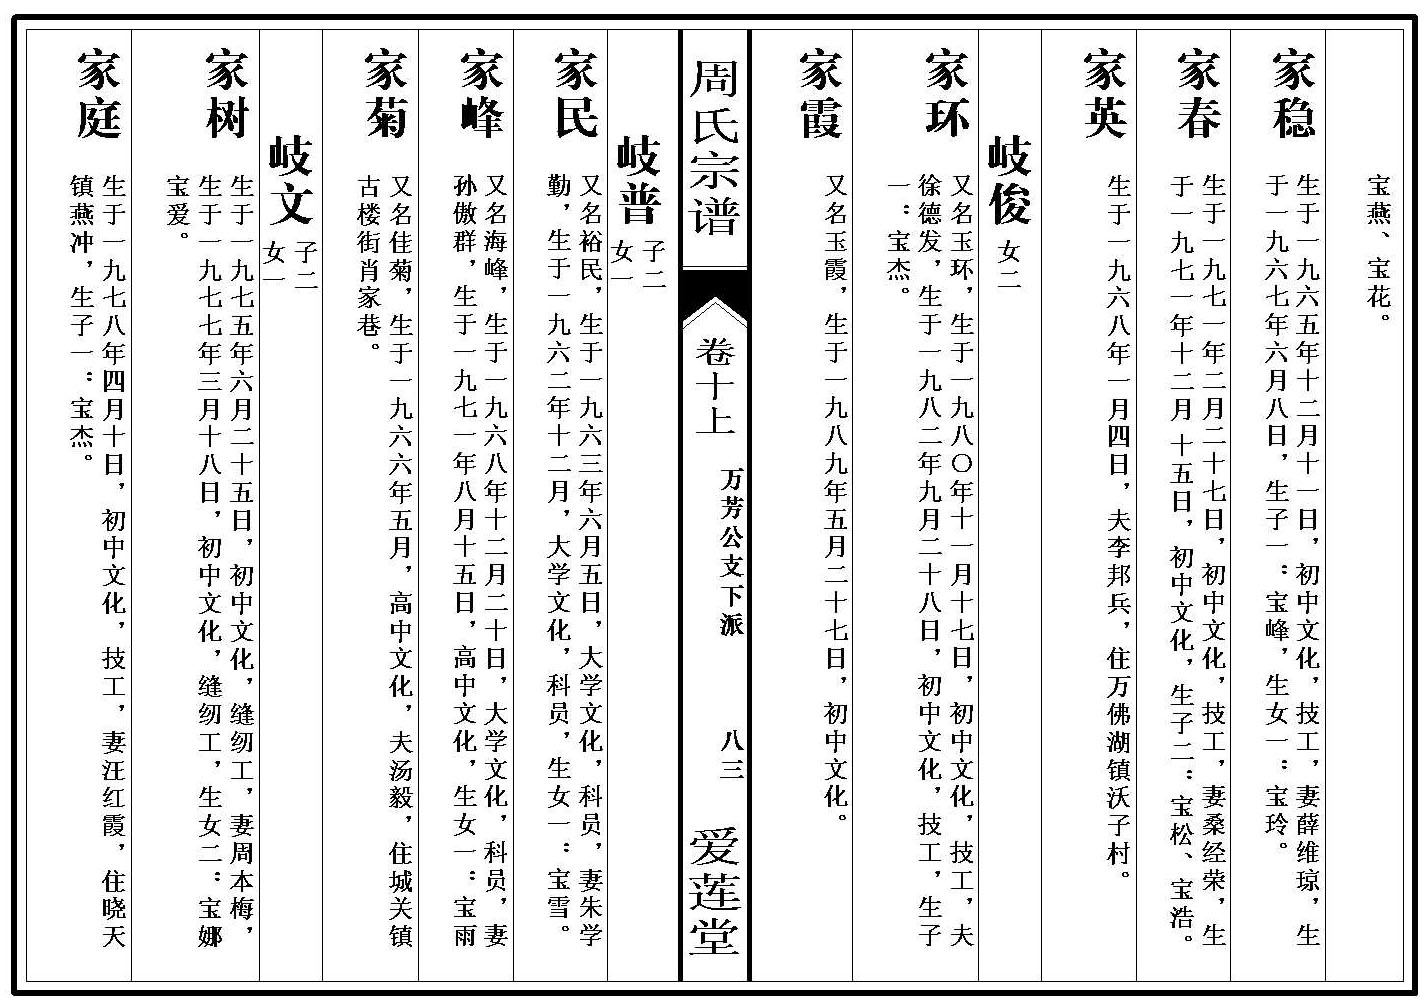 宝燕、宝花。
家稳
生于一九六五年十二月十一日，初中文化，技工，妻薛维琼，生
于一九六七年六月八日，生子一：宝峰，生女一：宝玲。
家春
生于一九七一年二月二十七日，初中文化，技工，妻桑经荣，生
于一九七一年十二月十五日，初中文化，生子二：宝松、宝浩。
家英
生于一九六八年一月四日，夫李邦兵，住万佛湖镇沃子村。
岐俊
女二
家环
又名玉环，生于一九八〇年十一月十七日，初中文化，技工，夫
徐德发，生于一九八二年九月二十八日，初中文化，技工，生子
一：宝杰。
家霞
又名玉霞，生于一九八九年五月二十七日，初中文化。
周氏宗谱
卷十上
万芳公支下派
八三
爱莲堂
岐普
子二
女一
家民
又名裕民，生于一九六三年六月五日，大学文化，科员，妻朱学
勤，生于一九六二年十二月，大学文化，科员，生女一：宝雪。
家峰
又名海峰，生于一九六八年十二月二十日，大学文化，科员，妻
孙傲群，生于一九七一年八月十五日，高中文化，生女一：宝雨
家菊
又名佳菊，生于一九六六年五月，高中文化，夫汤毅，住城关镇
古楼街肖家巷。
岐文
子二
女一
家树
生于一九七五年六月二十五日，初中文化，缝纫工，妻周本梅，
生于一九七七年三月十八日，初中文化，缝纫工，生女二：宝娜
宝爱。
家庭
生于一九七八年四月十日，初中文化，技工，妻汪红霞，住晓天
镇燕冲，生子一：宝杰。